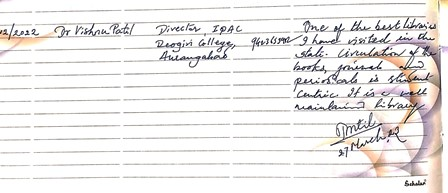 02/2022 Dr Vishnu Patil Director IQAC
Deogiri College,
Aurangabad
One of the best libraries
I have visited in the
state. Circulation of the
books, journals and
periodicals is student
centric. It is a well
maintained library
27 March, 22